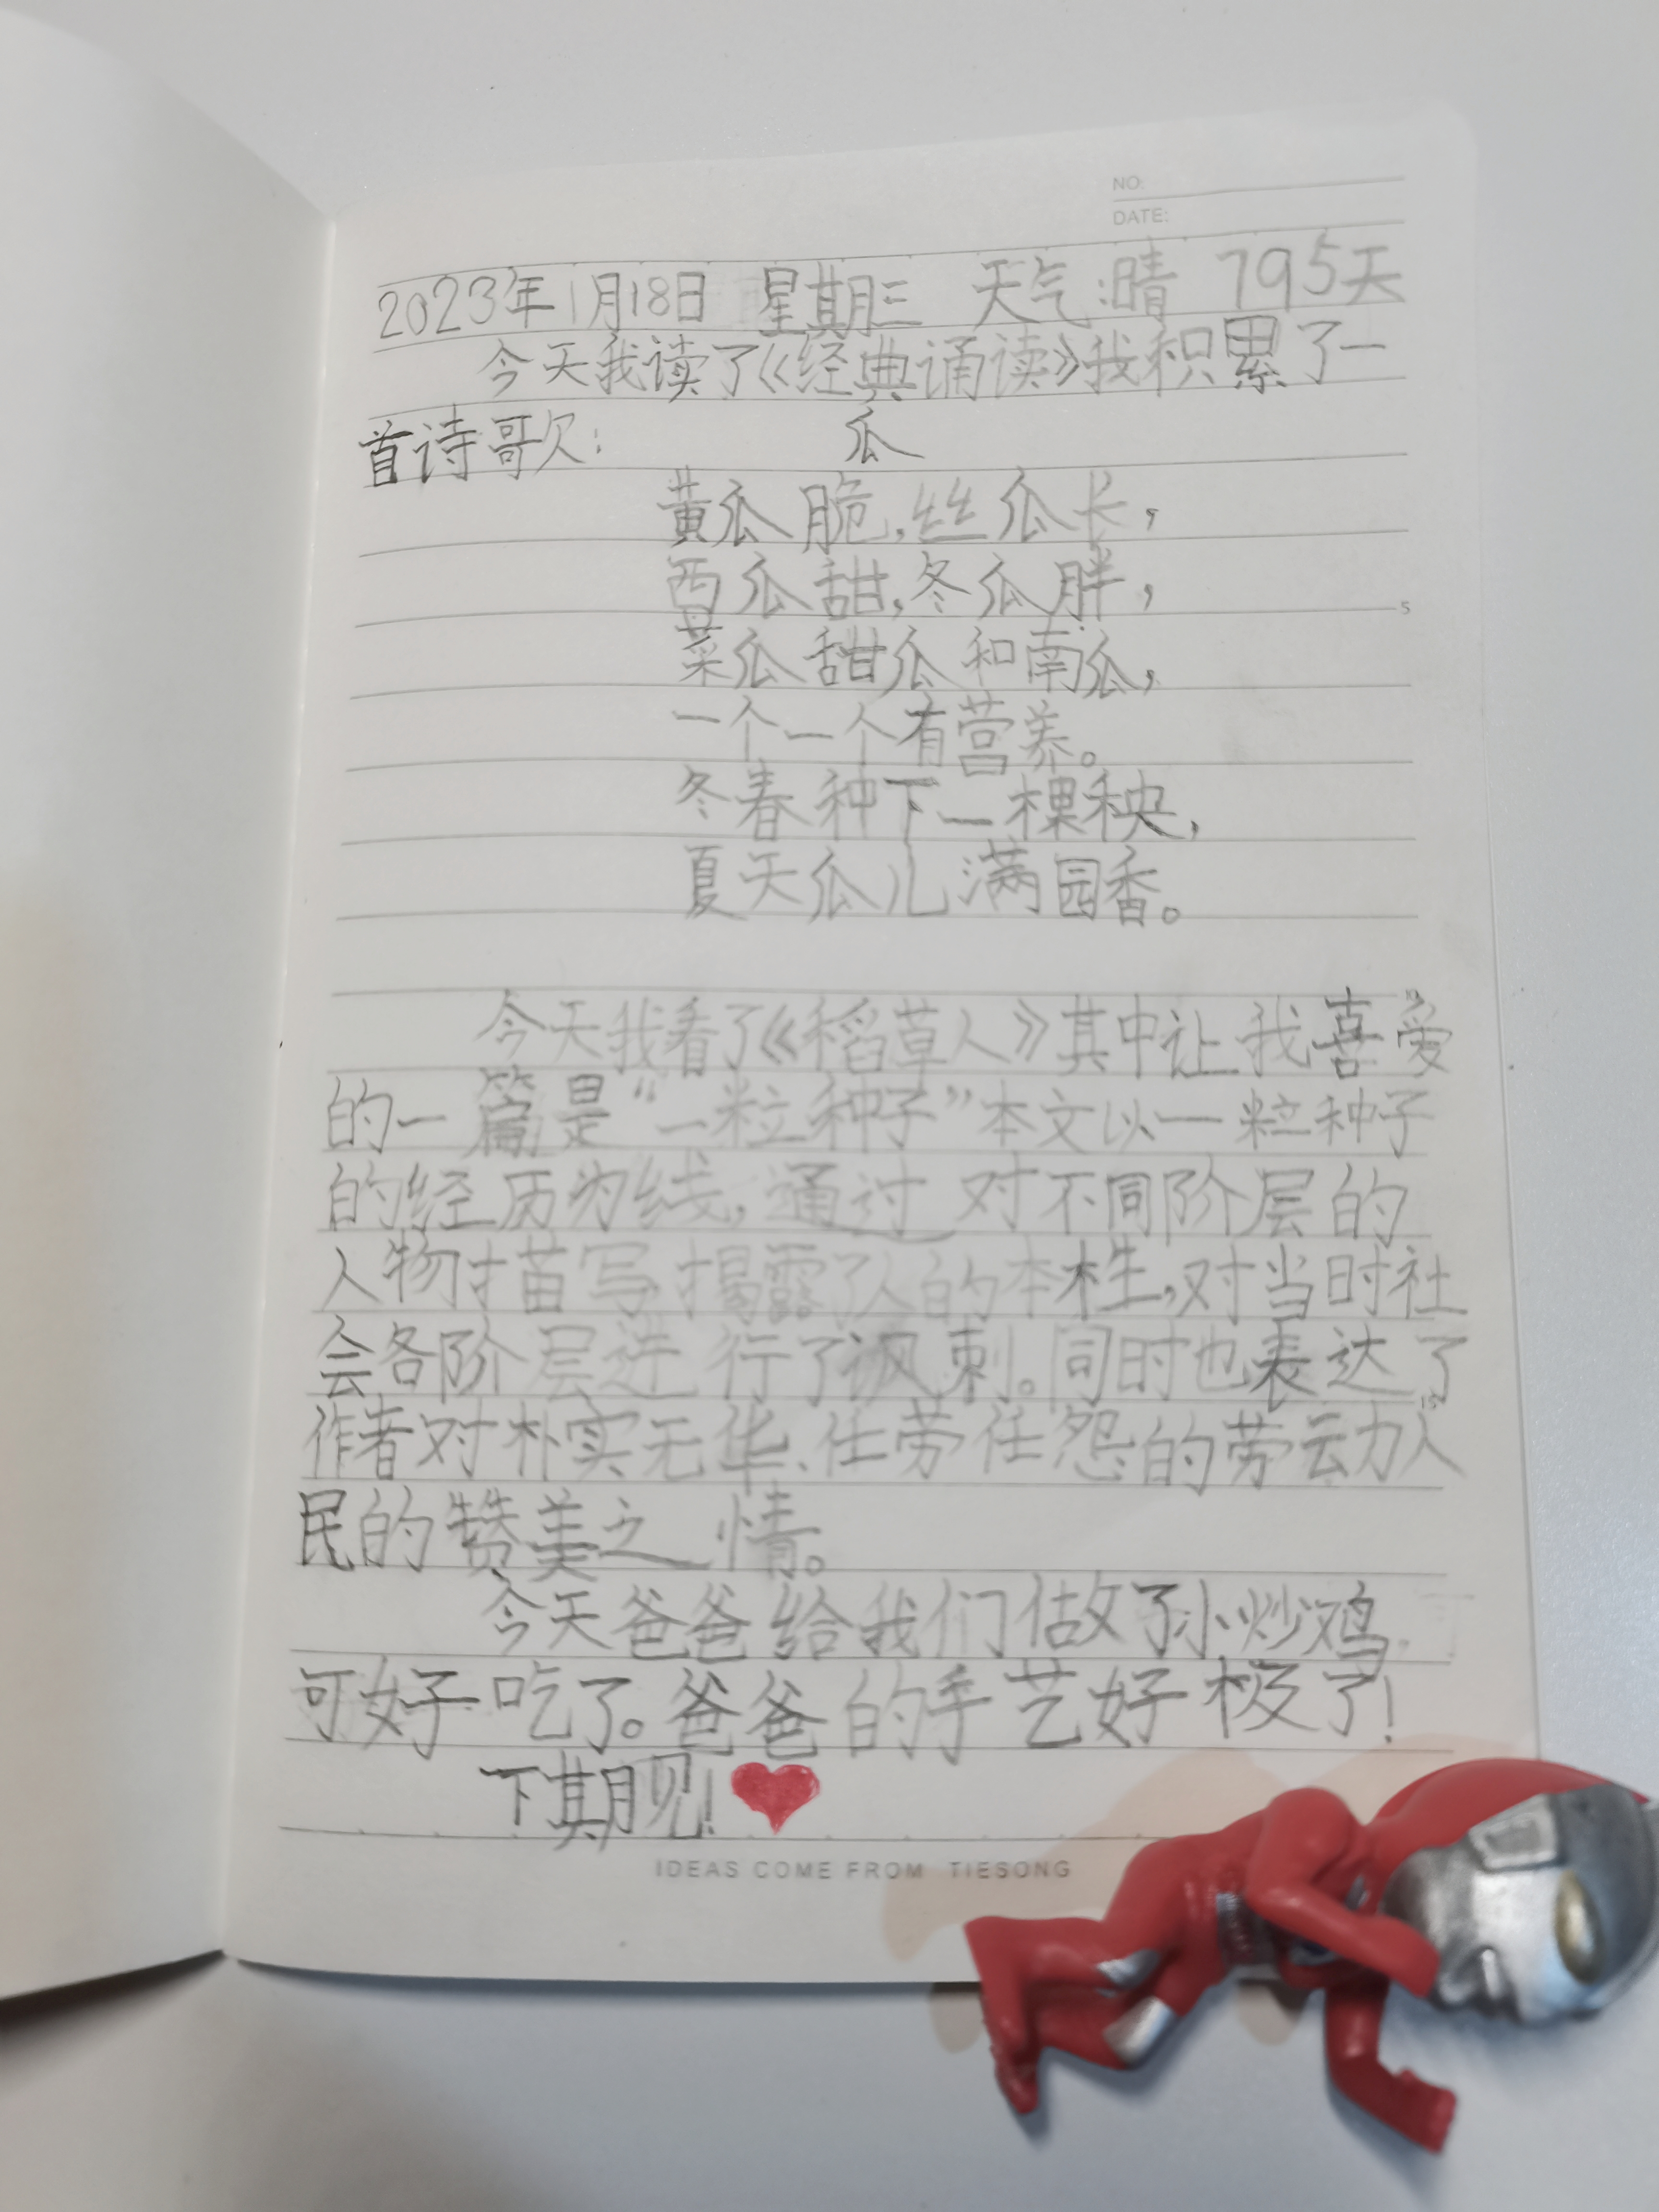 NO:
DATE:
2023年1月18日 星期三 天气:晴 795天
今天我读了《经典诵读》我积累了一
首诗歌:
瓜
黄瓜脆,丝瓜长,
西瓜甜,冬瓜胖,
菜瓜甜瓜和南瓜,
一个一个有营养。
冬春种下一棵秧,
夏天瓜儿满园香。
今天我看了《稻草人》其中让我喜爱
的一篇是“一粒种子”本文以一粒种子
的经历为线,通过对不同阶层的
人物描写揭露了人的本性,对当时社
会各阶层进行了讽刺。同时也表达了
作者对朴实无华、任劳任怨的劳动人
民的赞美之情。
今天爸爸给我们做了小炒鸡,
可好吃了。爸爸的手艺好极了!
下期见!
5
15
IDEAS COME FROM TIESONG